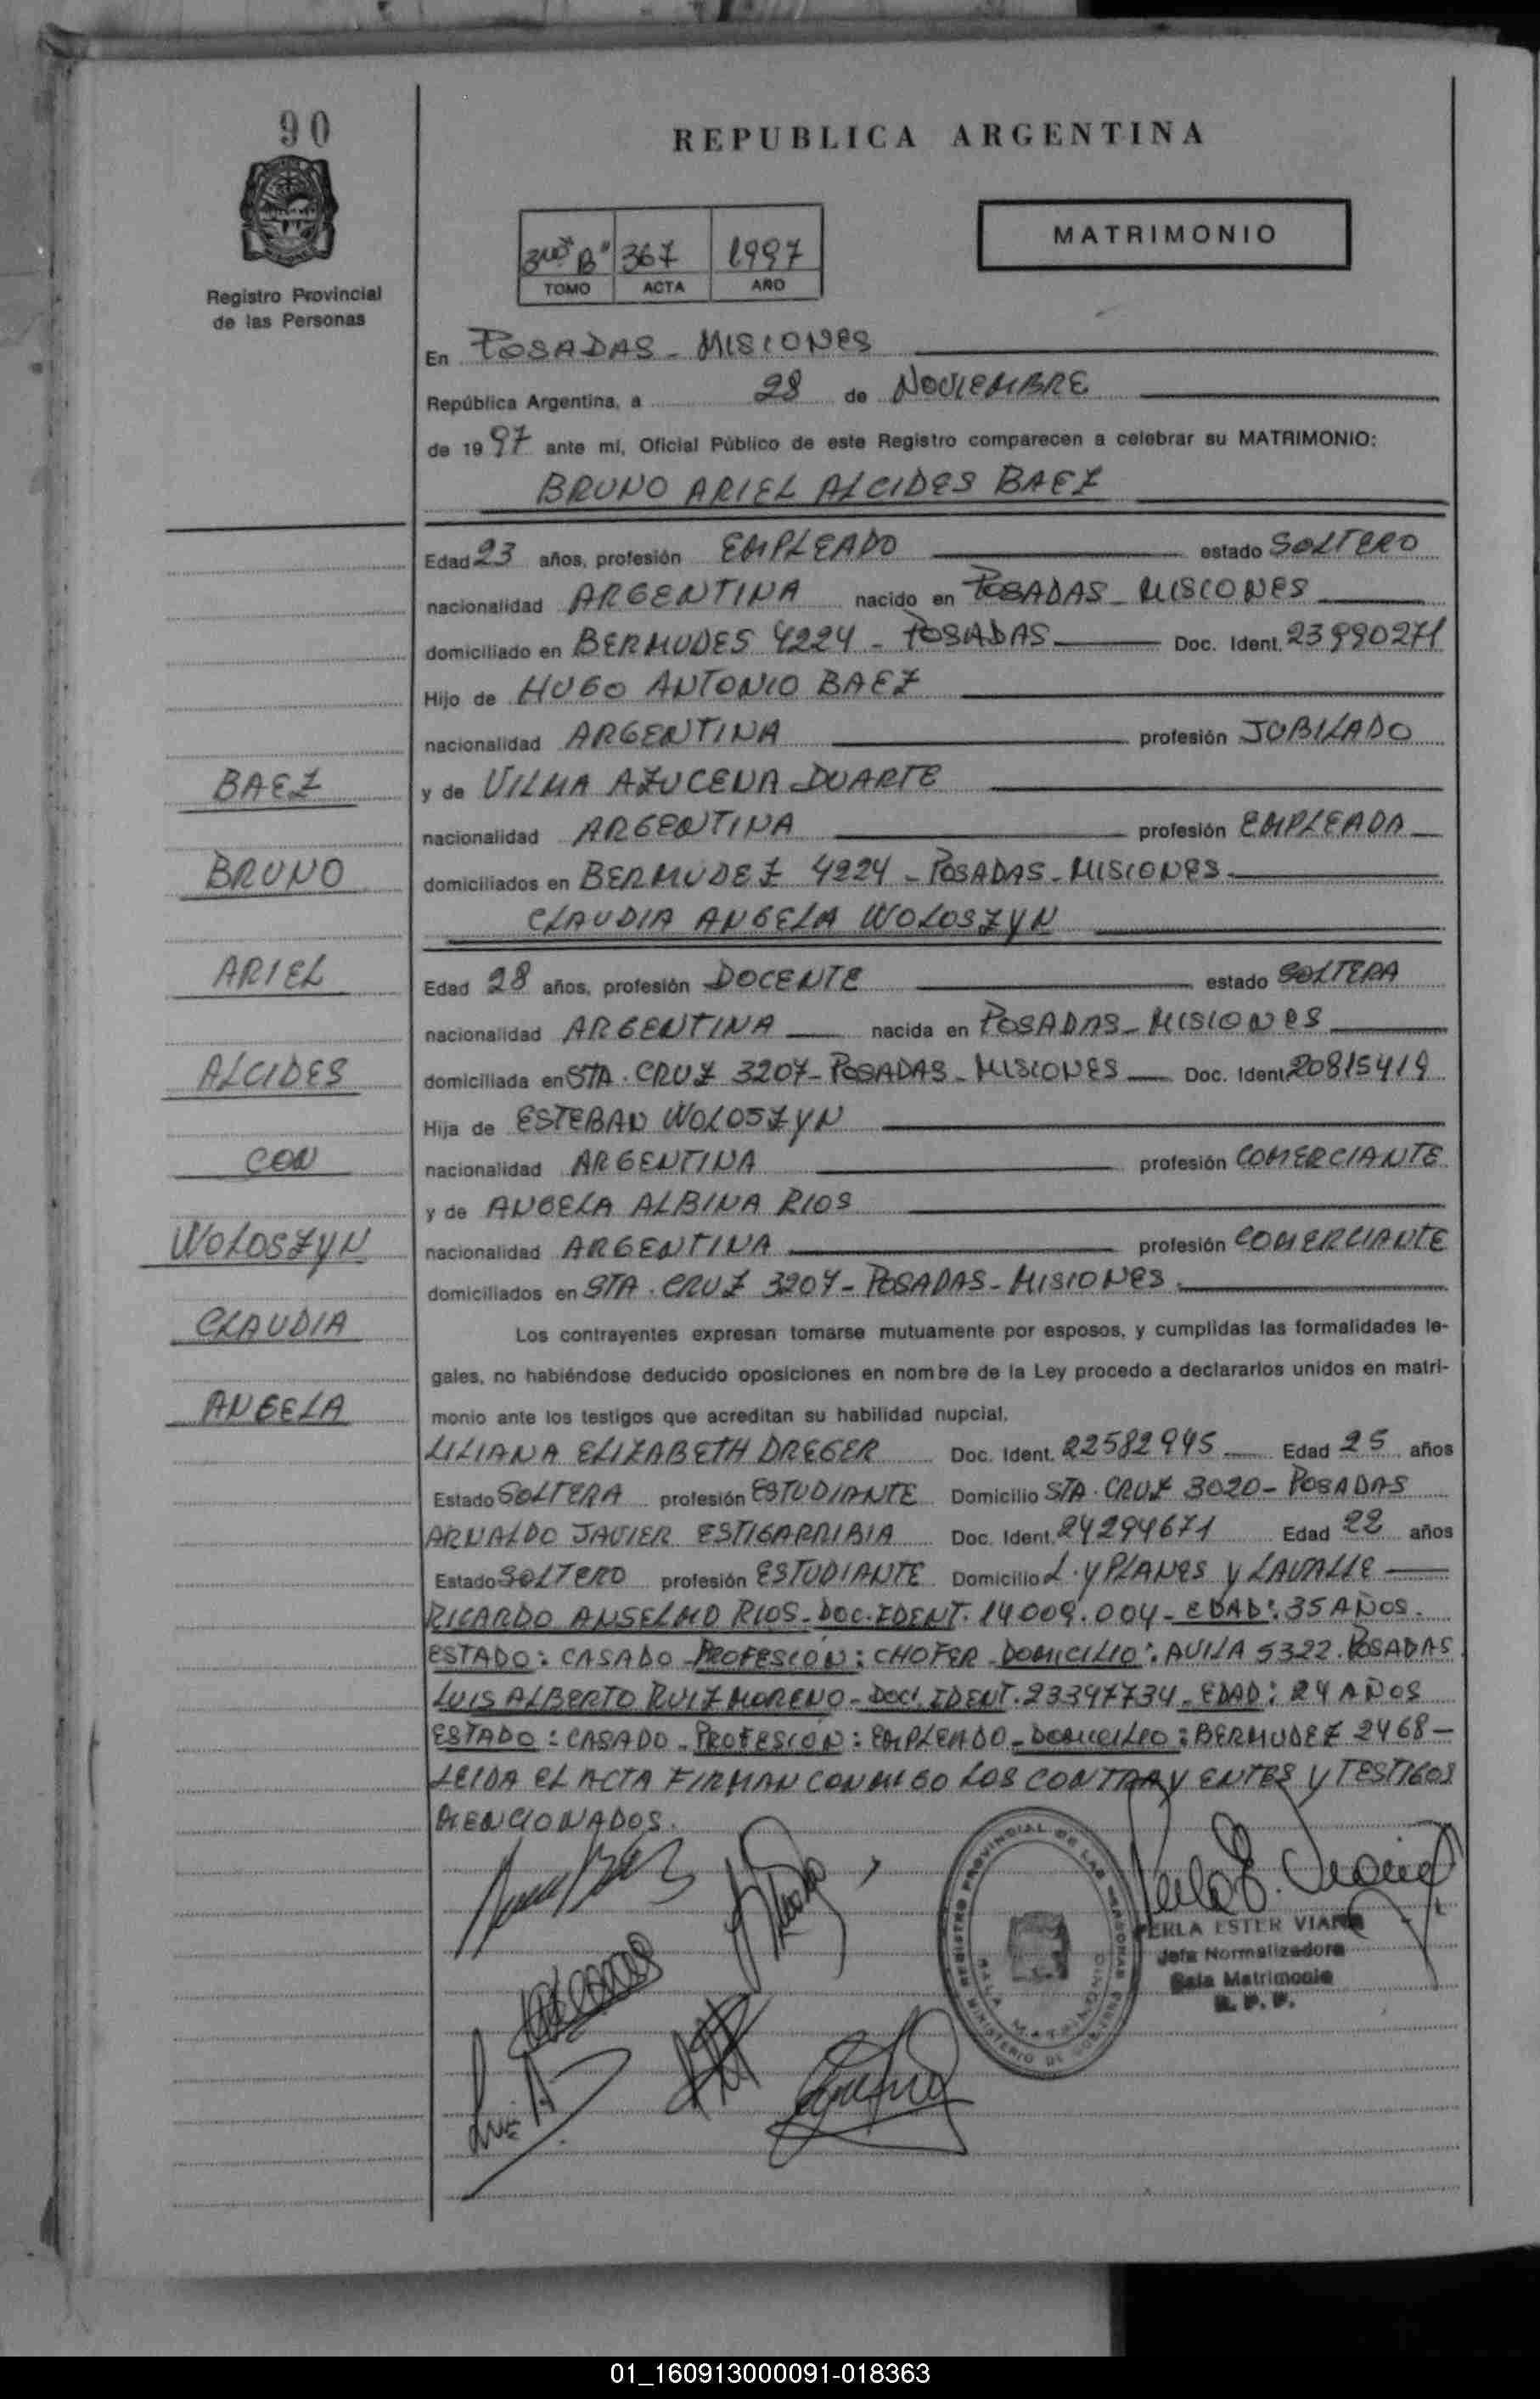 90
REPUBLICA ARGENTINA
MATRIMONIO
3ro "B" 367 1997
TOMO ACTA AÑO
Registro Provincial
de las Personas
En POSADAS - MISIONES
República Argentina, a 28 de NOVIEMBRE
de 1997 ante mí, Oficial Público de este Registro comparecen a celebrar su MATRIMONIO:
BRUNO ARIEL ALCIDES BAEZ
Edad 23 años, profesión EMPLEADO estado SOLTERO
nacionalidad ARGENTINA nacido en POSADAS - MISIONES
domiciliado en BERMUDES 4224 - POSADAS Doc. Ident. 23990271
Hijo de HUGO ANTONIO BAEZ
nacionalidad ARGENTINA profesión JUBILADO
y de VILMA AZUCENA DUARTE
nacionalidad ARGENTINA profesión EMPLEADA
domiciliados en BERMUDEZ 4224 - POSADAS - MISIONES
CLAUDIA ANGELA WOLOSZYN
Edad 28 años, profesión DOCENTE estado SOLTERA
nacionalidad ARGENTINA nacida en POSADAS - MISIONES
domiciliada en STA. CRUZ 3207 - POSADAS - MISIONES Doc. Ident. 20815419
Hija de ESTEBAN WOLOSZYN
nacionalidad ARGENTINA profesión COMERCIANTE
y de ANGELA ALBINA RIOS
nacionalidad ARGENTINA profesión COMERCIANTE
domiciliados en STA. CRUZ 3207 - POSADAS - MISIONES.
BAEZ
BRUNO
ARIEL
ALCIDES
CON
WOLOSZYN
CLAUDIA
ANGELA
Los contrayentes expresan tomarse mutuamente por esposos, y cumplidas las formalidades le-
gales, no habiéndose deducido oposiciones en nombre de la Ley procedo a declararlos unidos en matri-
monio ante los testigos que acreditan su habilidad nupcial.
LILIANA ELIZABETH DREGER Doc. Ident. 22582945 Edad 25 años
Estado SOLTERA profesión ESTUDIANTE Domicilio STA. CRUZ 3020 - POSADAS
ARNALDO JAVIER ESTIGARRIBIA Doc. Ident. 24294671 Edad 22 años
Estado SOLTERO profesión ESTUDIANTE Domicilio L. y PLANES y LAVALLE
RICARDO ANSELMO RIOS - DOC. IDENT. 14009.004 - EDAD: 35 AÑOS.
ESTADO: CASADO - PROFESIÓN: CHOFER - DOMICILIO: AVILA 5322. POSADAS
LUIS ALBERTO RUIZ MORENO - DOC. IDENT. 23347734 - EDAD: 24 AÑOS
ESTADO: CASADO - PROFESIÓN: EMPLEADO - DOMICILIO: BERMUDEZ 2468 -
LEIDA EL ACTA FIRMAN CONMIGO LOS CONTRAYENTES Y TESTIGOS
MENCIONADOS.
REGISTRO PROVINCIAL DE LAS PERSONAS
SALA MATRIMONIO
MINISTERIO DE GOBIERNO
PERLA ESTER VIANA
Jefa Normalizadora
Sala Matrimonio
R. P. P.
01_160913000091-018363